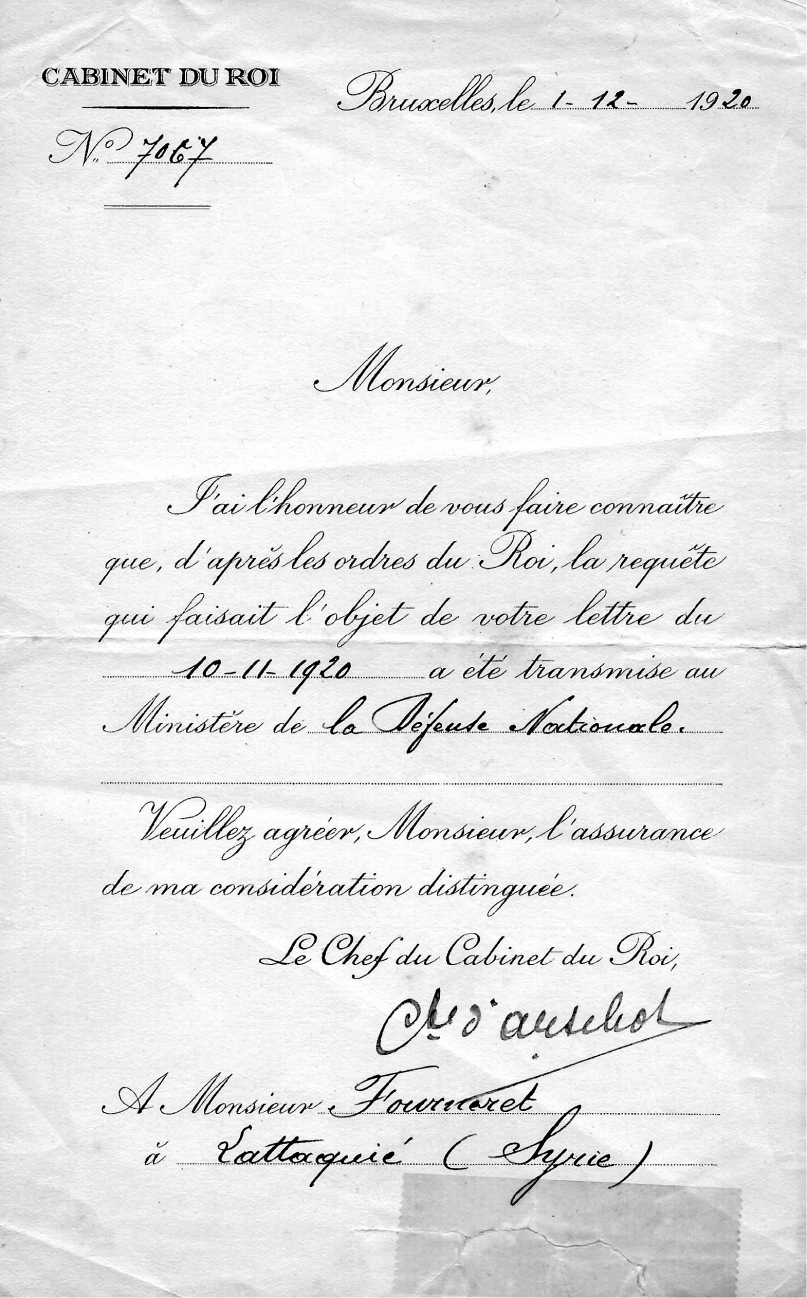 CABINET DU ROI
Bruxelles, le 1-12-1920
N.° 7067
Monsieur,
J'ai l'honneur de vous faire connaître
que, d'après les ordres du Roi, la requête
qui faisait l'objet de votre lettre du
10-11-1920 a été transmise au
Ministère de la Défense Nationale.
Veuillez agréer, Monsieur, l'assurance
de ma considération distinguée.
Le Chef du Cabinet du Roi,
Cte d'Arschot
A Monsieur Fournoret
à Lattaquié (Syrie)